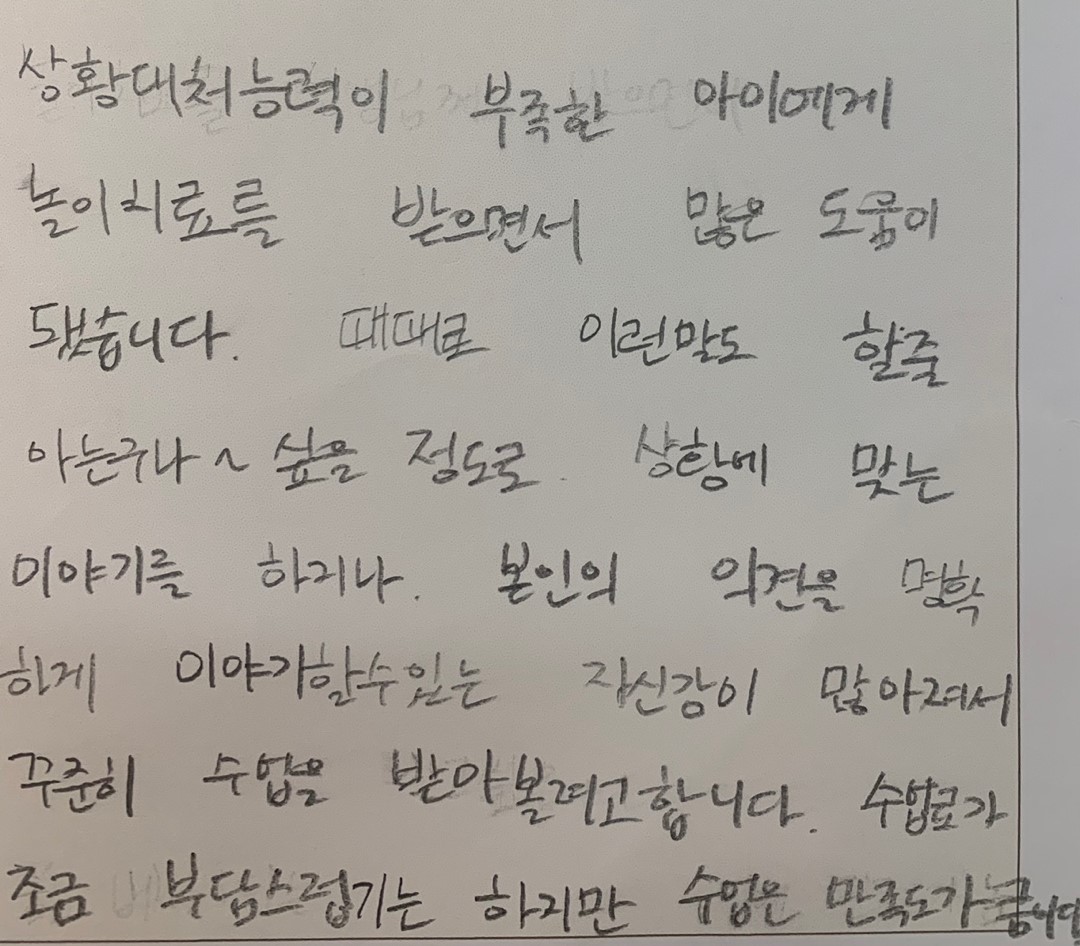 상황대처능력이 부족한 아이에게
놀이치료를 받으면서 많은 도움이
됐습니다. 때때로 이런말도 할줄
아는구나~ 싶을 정도로. 상황에 맞는
이야기를 하거나. 본인의 의견을 명확
하게 이야기할수있는 자신감이 많아져서
꾸준히 수업을 받아볼려고합니다. 수업료가
조금 부담스럽기는 하지만 수업은 만족도가 큽니다